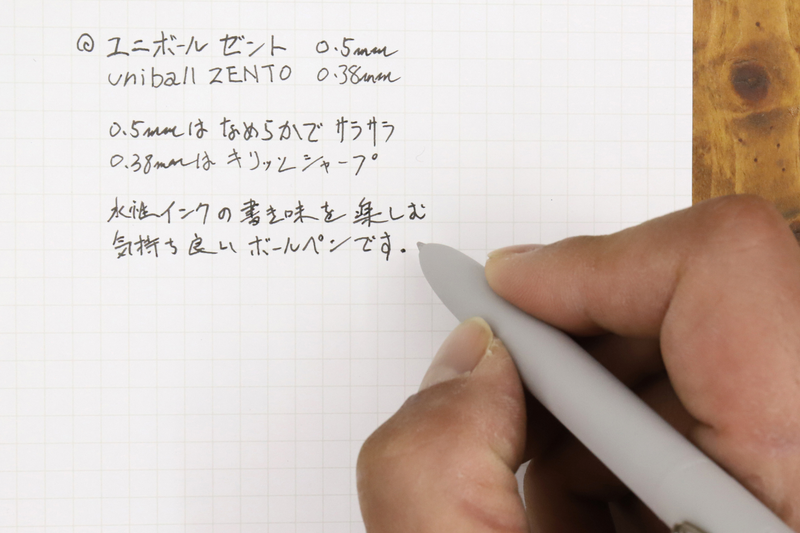 ◎ ユニボール ゼント 0.5mm
uniball ZENTO 0.38mm
0.5mmは なめらかで サラサラ
0.38mmは キリッと シャープ
水性インクの書き味を 楽しむ
気持ち良い ボールペンです.